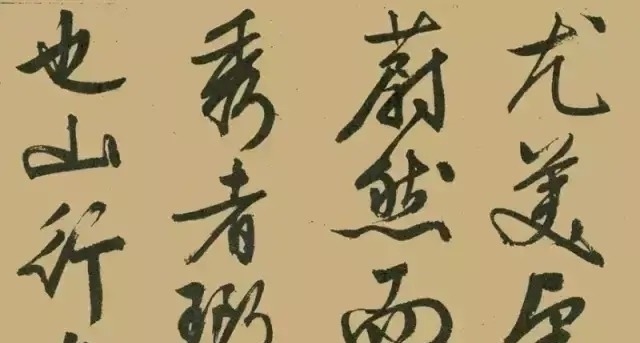 尤美
蔚然而
秀者
也山行